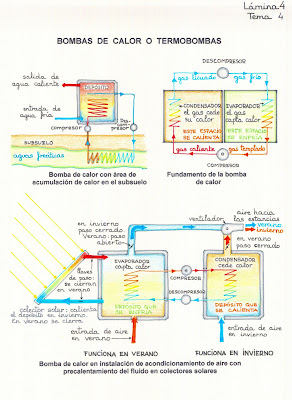 Lámina 4
Tema 4
BOMBAS DE CALOR O TERMOBOMBAS
salida de
agua caliente
DEPÓSITO
entrada de
agua fría
COMPRESOR
DES-
PRESOR
SUBSUELO
aguas freáticas
Bomba de calor con área de
acumulación de calor en el subsuelo
DESCOMPRESOR
gas licuado
gas frío
CONDENSADOR
el gas cede
su calor
EVAPORADOR
el gas
capta calor
ESTE ESPACIO
SE CALIENTA
ESTE ESPACIO
SE ENFRÍA
gas caliente
gas templado
COMPRESOR
Fundamento de la bomba
de calor
en invierno
paso cerrado.
Verano: paso
abierto
ventilador
aire hacia
las estancias
verano
invierno
en verano
paso cerrado
EVAPORADOR
capta calor
CONDENSADOR
cede calor
COMPRESOR
DESCOMPRESOR
llaves de
paso: se
cierran
en verano
DEPÓSITO QUE
SE ENFRÍA
DEPÓSITO QUE
SE CALIENTA
colector solar: calienta
el depósito en invierno.
En verano se cierra
entrada de aire
en verano
entrada de aire
en invierno
FUNCIONA EN VERANO
FUNCIONA EN INVIERNO
Bomba de calor en instalación de acondicionamiento de aire con
precalentamiento del fluido en colectores solares